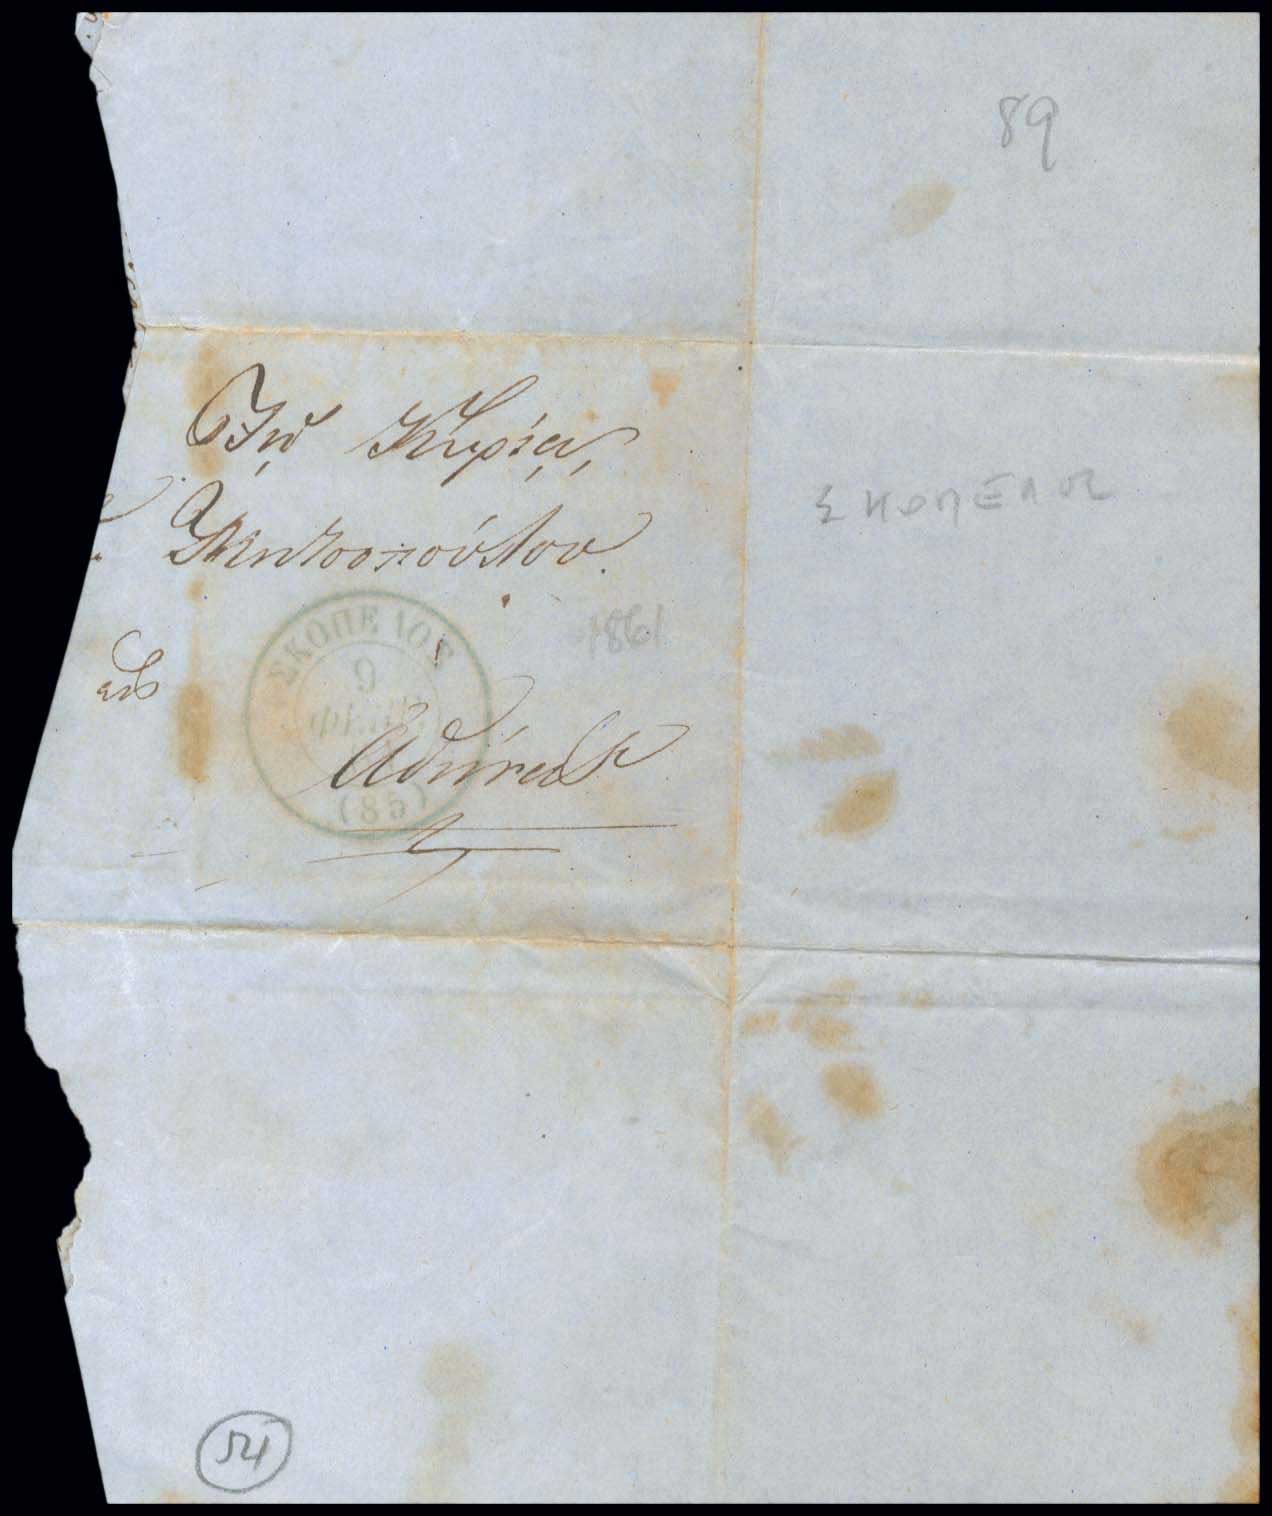 89
Τῷ Κυρίῳ,
ΣΚΟΠΕΛΟΣ
ΣΚΟΠΕΛΟΣ
9
1861
εἰς
Ἀθήνας
(85)
54